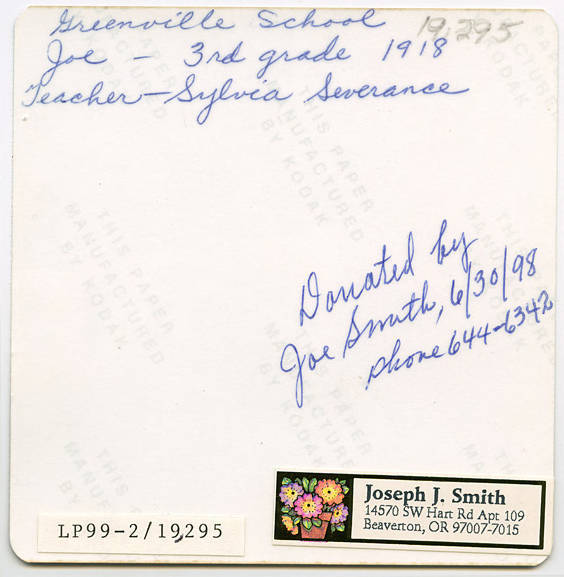 Greenville School
19,295
Joe - 3rd grade 1918
Teacher - Sylvia Severance
THIS PAPER
MANUFACTURED
BY KODAK
Donated by
Joe Smith, 6/30/98
phone 644-6342
LP99-2/19,295
Joseph J. Smith
14570 SW Hart Rd Apt 109
Beaverton, OR 97007-7015